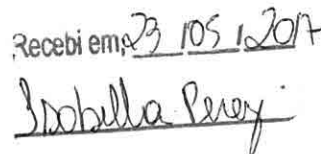 Recebi em: 23 / 05 / 2017
Isabella Perez